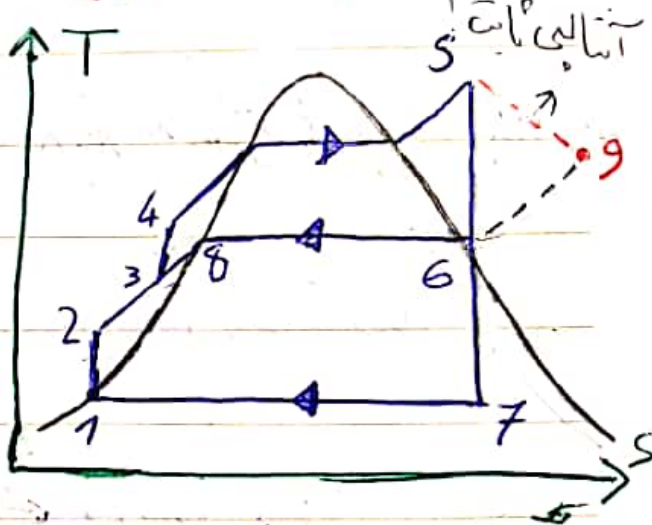 آنتالپی ثابت!
T
5
9
4
3
8
6
2
1
7
S